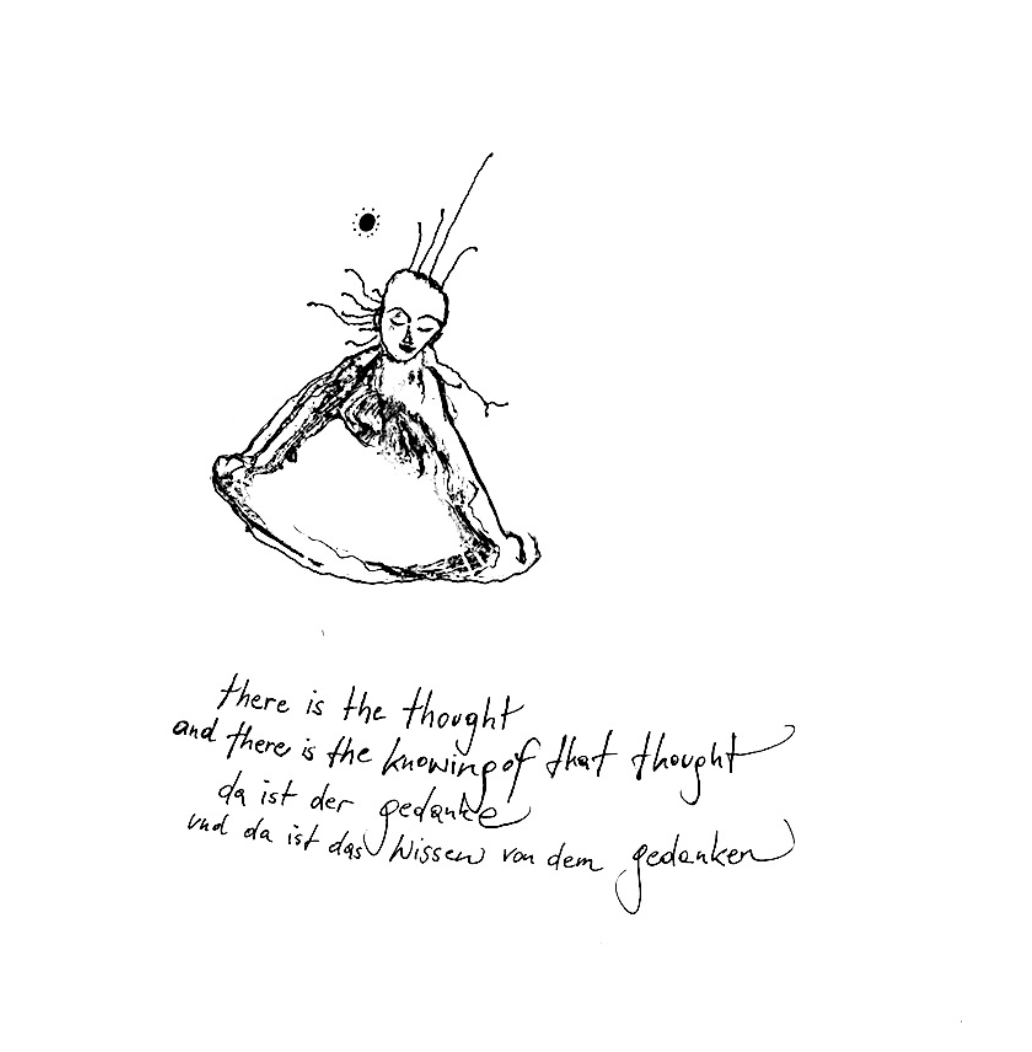 there is the thought
and there is the knowing of that thought
da ist der gedanke
und da ist das Wissen von dem gedanken